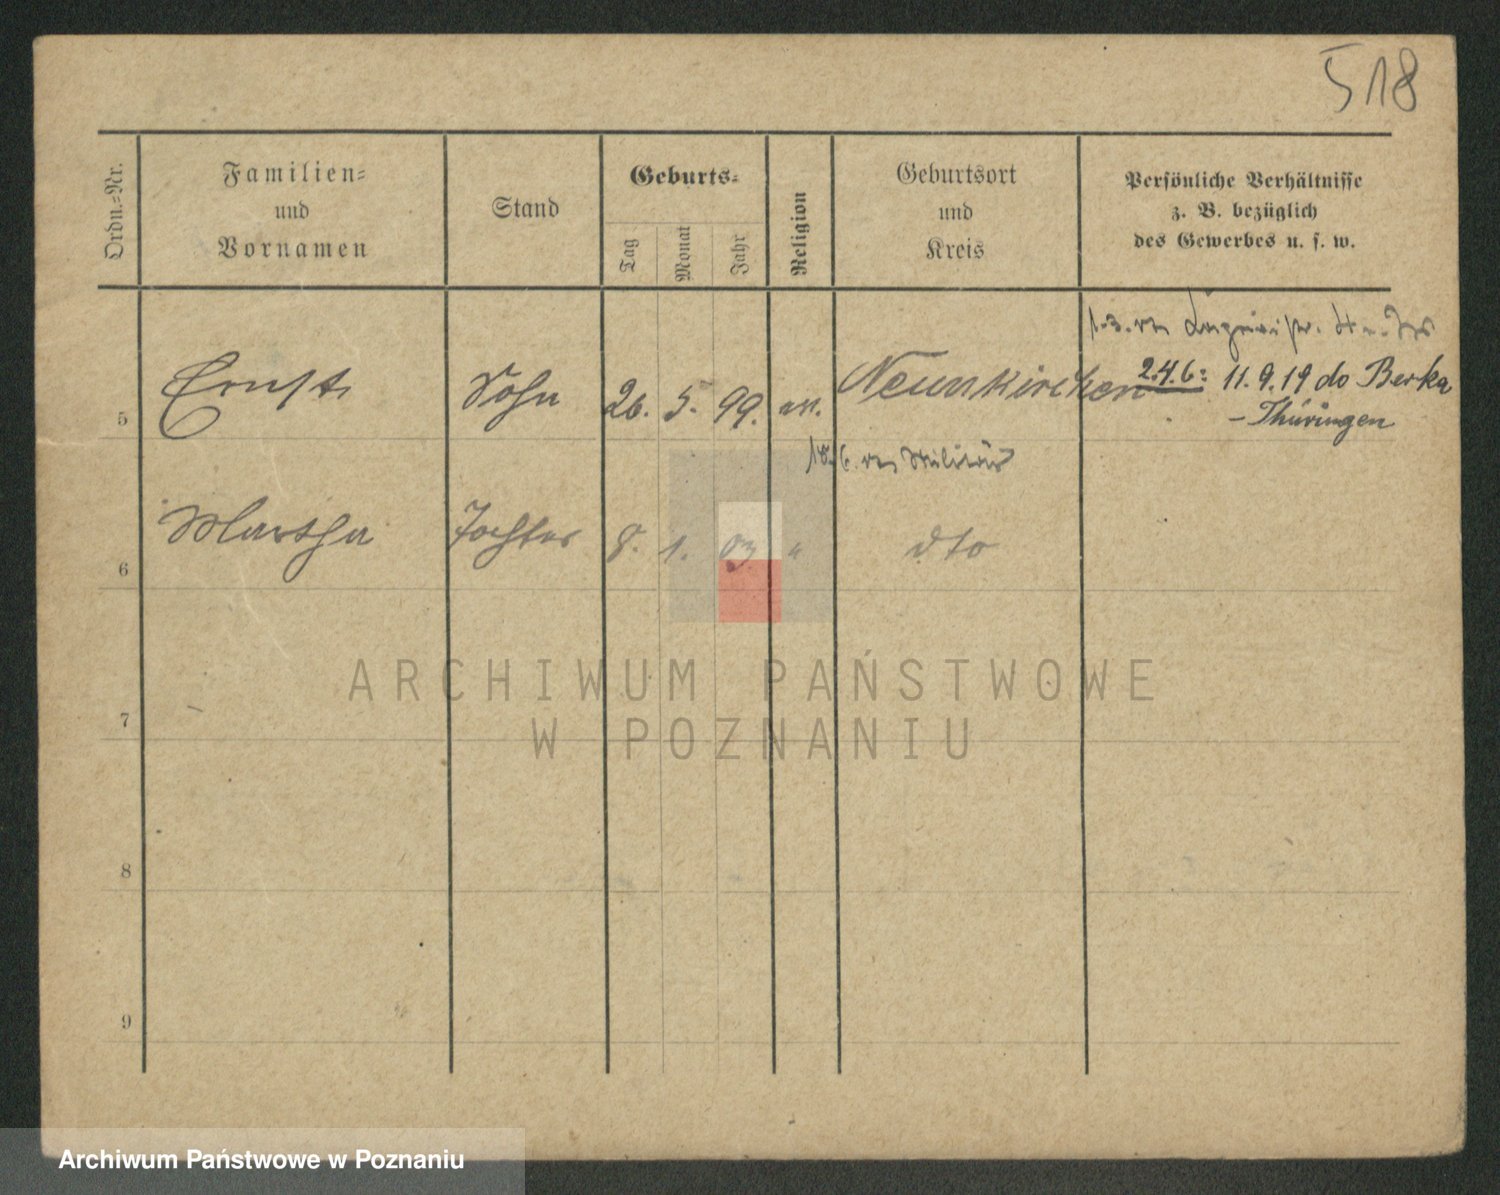 518
Ordn.-Nr.
Familien-
und
Vornamen
Stand
Geburts-
Tag
Monat
Jahr
Religion
Geburtsort
und
Kreis
Persönliche Verhältnisse
z. B. bezüglich
des Gewerbes u. s. w.
5 Ernst Sohn 26. 5. 99. ev. Neunkirchen
2.4.6: 11.9.19 do Berka
- Thüringen
6. von Militär
6 Martha Tochter 8. 1. 03 " dto
7
8
9
ARCHIWUM PAŃSTWOWE
W POZNANIU
Archiwum Państwowe w Poznaniu